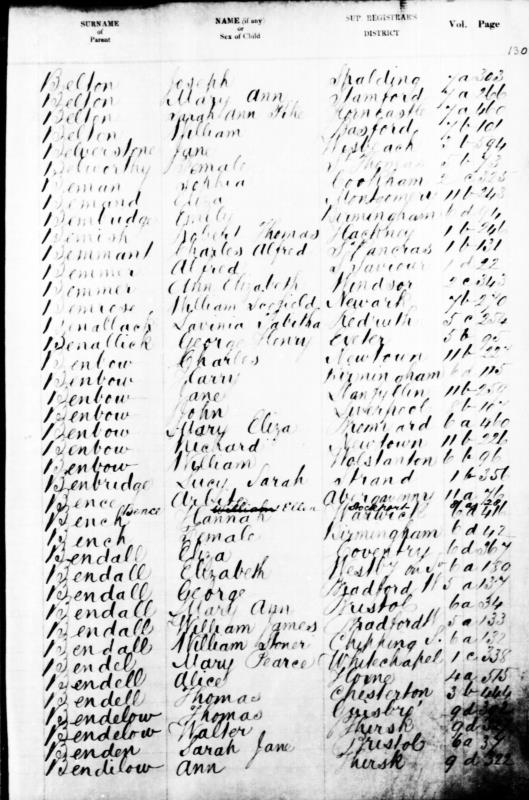 SURNAME of Parent NAME (if any) or Sex of Child SUP. REGISTRAR'S DISTRICT Vol. Page
130
Belton Joseph Spalding 7a 303
Belton Mary Ann Stamford 7a 266
Belton Sarah Ann Horncastle 7a 460
Belton William Basford 7b 101
Belverstone Jane Wisbeach 3b 594
Belworthy Female St Thomas 5b
Beman Sophia Cookham 2c 325
Bemand Eliza Montgomery 11b 243
Bembridge Emily Birmingham 6d 94
Bemish Robert Thomas Hackney 1b 246
Bemmant Charles Alfred St Pancras 1b 131
Bemmer Alfred St Saviour 1d 22
Bemmer Ann Elizabeth Windsor 2c 343
Bemrose William Newark 7b 270
Benallack Lavinia Tabitha Redruth 5c 254
Benallick George Henry Exeter 5b 95
Benbow Charles Newtown 11b
Benbow Harry Birmingham 6d 115
Benbow Jane Llanfyllin 11b 259
Benbow John Liverpool 8b 167
Benbow Mary Eliza Bromyard 6a 460
Benbow Richard Newtown 11b 226
Benbow William Wolstanton 6b 96
Benbridge Lucy Sarah Strand 1b 356
Bence Abergavenny 11a 76
Bence William Ellen Stockport
Bench Hannah Warwick 6d 491
Bench Female Birmingham 6d 42
Bendall Eliza Coventry 6d 367
Bendall Elizabeth Westby on S. 6a 180
Bendall George Bradford W 5a 137
Bendall Mary Ann Bristol 6a 34
Bendall William James Bradford W 5a 133
Bendall William Stoner Chipping S. 6a 132
Bendel Mary Pearce Whitechapel 1c 338
Bendell Alice 4a 515
Bendell Thomas Chesterton 3b 444
Bendelow Thomas Guisbro' 9d
Bendelow Walter Thirsk 9d
Benden Sarah Jane Bristol 6a 37
Bendilow Ann Thirsk 9d 322